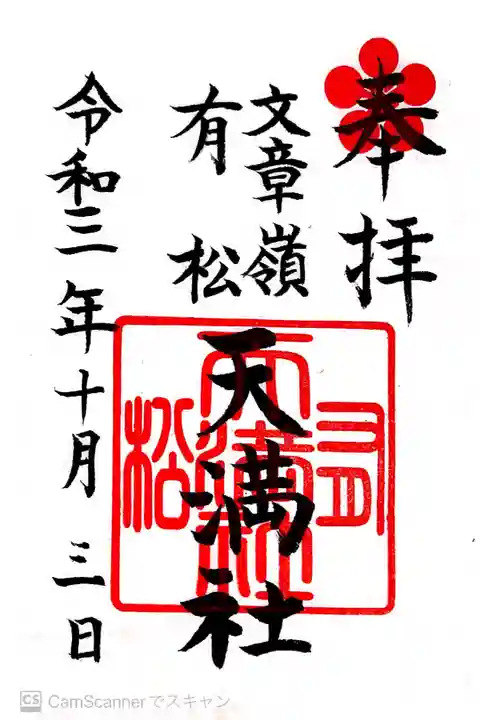 奉拝
文章嶺
有松
天満社
令和三年十月三日
有
天満社
松
CS CamScannerでスキャン